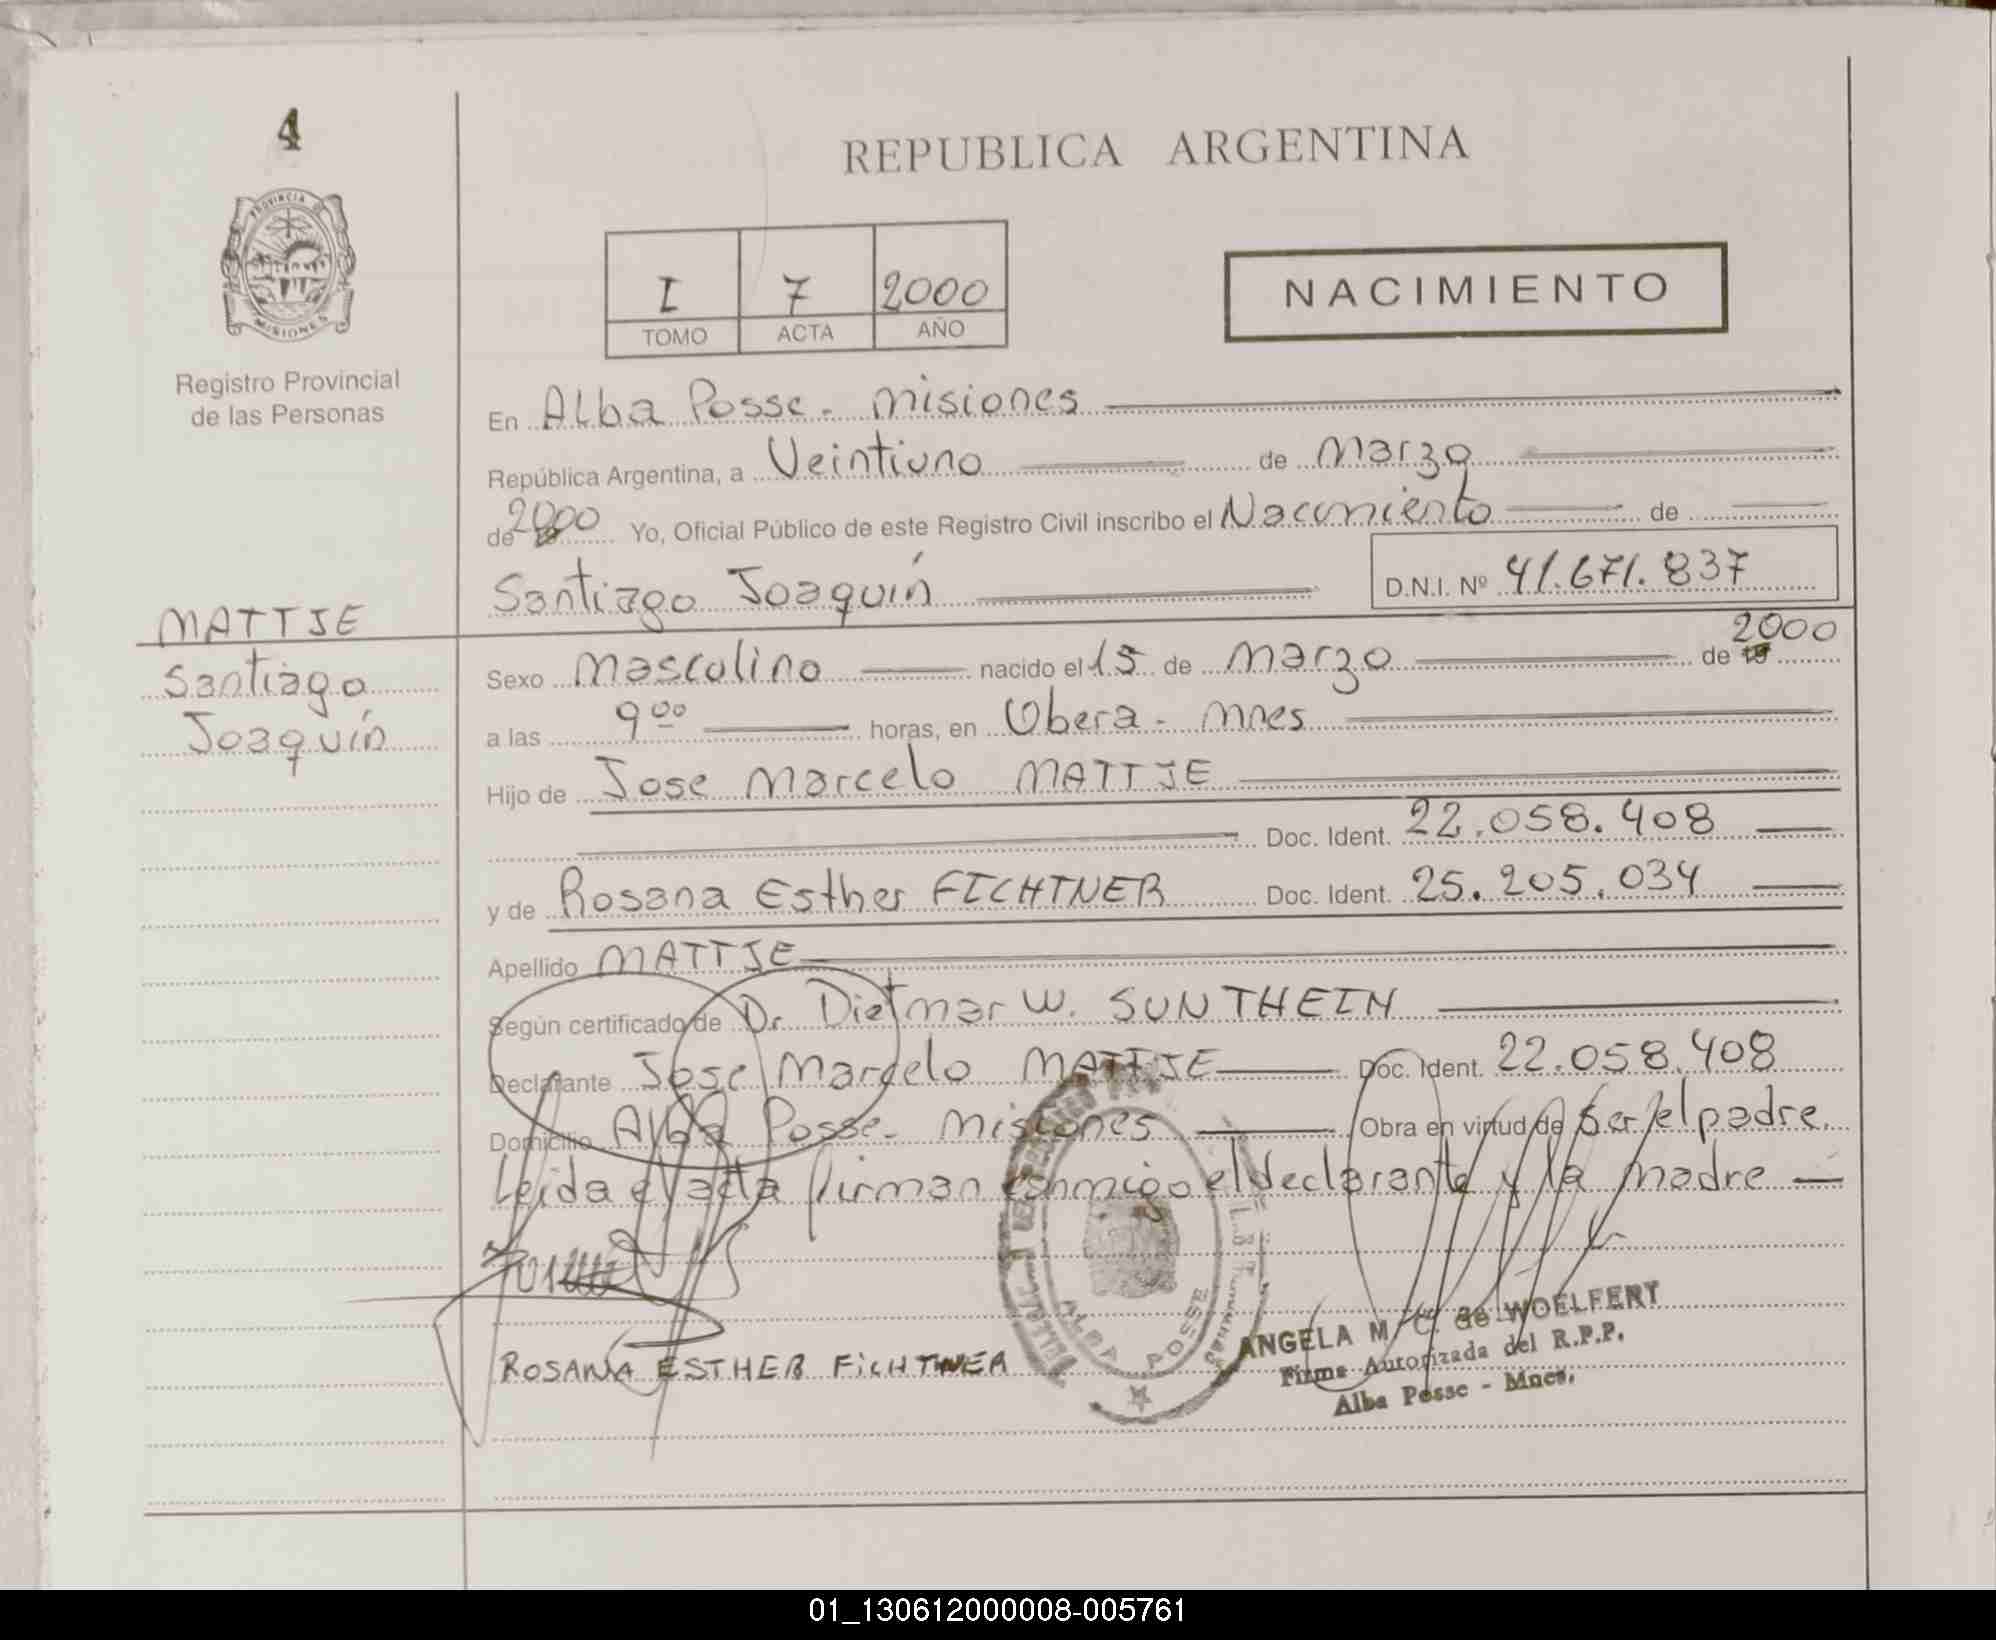 4
REPUBLICA ARGENTINA
PROVINCIA DE
MISIONES
I 7 2000
TOMO ACTA AÑO
NACIMIENTO
Registro Provincial
de las Personas
En Alba Posse - Misiones
República Argentina, a Veintiuno de Marzo
de 2000 Yo, Oficial Público de este Registro Civil inscribo el Nacimiento de
Santiago Joaquín D.N.I. Nº 41.671.837
MATTJE
Santiago
Joaquín
Sexo Masculino nacido el 15 de Marzo de 19 2000
a las 9 00 horas, en Obera - Mnes
Hijo de Jose Marcelo MATTJE
Doc. Ident. 22.058.408
y de Rosana Esther FICHTNER Doc. Ident. 25.205.034
Apellido MATTJE
Según certificado de Dr. Dietmar W. SUNTHEIM
Declarante Jose Marcelo MATTJE Doc. Ident. 22.058.408
Domicilio Alba Posse - Misiones Obra en virtud de Ser el padre.
Leida el acta firman conmigo el declarante y la madre
ROSANA ESTHER FICHTNER
ALBA POSSE
ANGELA M. C. de WOELFERT
Firma Autorizada del R.P.P.
Alba Posse - Mnes.
01_130612000008-005761